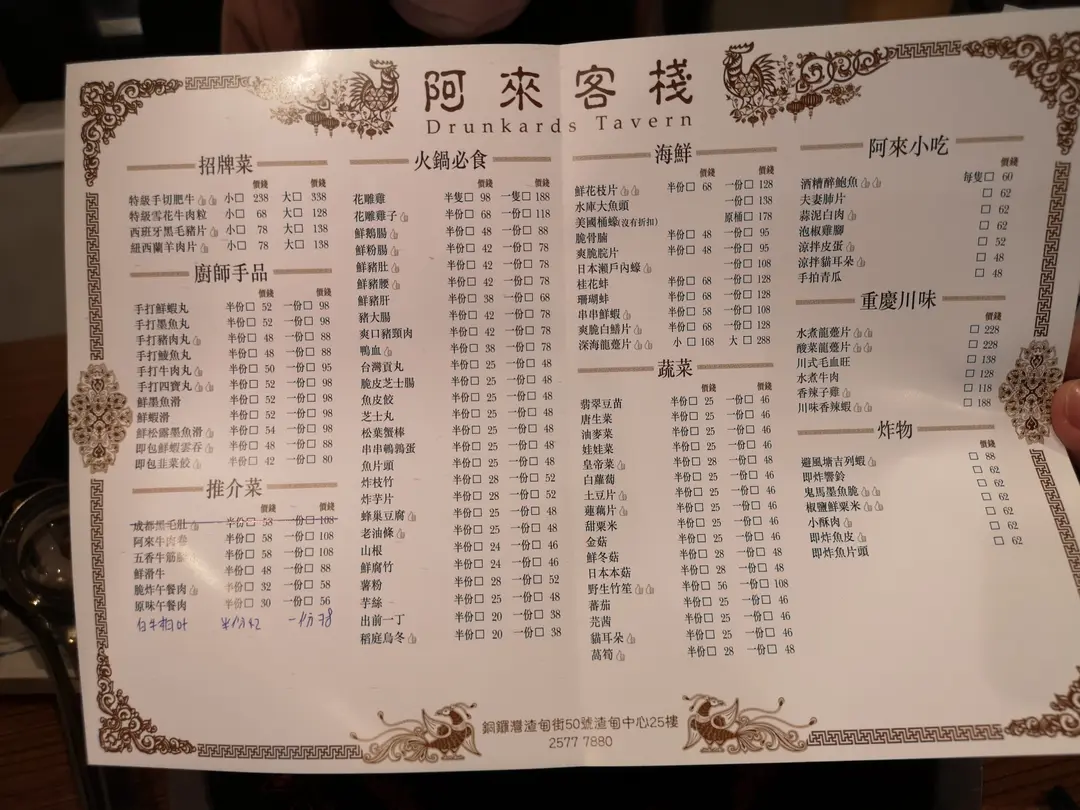 阿來客棧
Drunkards Tavern
招牌菜
價錢 價錢
特級手切肥牛 小□ 238 大□ 338
特級雪花牛肉粒 小□ 68 大□ 128
西班牙黑毛豬片 小□ 78 大□ 138
紐西蘭羊肉片 小□ 78 大□ 138
廚師手品
價錢 價錢
手打鮮蝦丸 半份□ 52 一份□ 98
手打墨魚丸 半份□ 52 一份□ 98
手打豬肉丸 半份□ 48 一份□ 88
手打鯪魚丸 半份□ 48 一份□ 88
手打牛肉丸 半份□ 50 一份□ 95
手打四寶丸 半份□ 52 一份□ 98
鮮墨魚滑 半份□ 52 一份□ 98
鮮蝦滑 半份□ 52 一份□ 98
鮮松露墨魚滑 半份□ 54 一份□ 98
即包鮮蝦雲吞 半份□ 48 一份□ 88
即包韭菜餃 半份□ 42 一份□ 80
推介菜
價錢 價錢
成都黑毛肚 半份□ 58 一份□ 108
阿來牛肉卷 半份□ 58 一份□ 108
五香牛筋腩 半份□ 58 一份□ 108
鮮滑牛 半份□ 48 一份□ 88
脆炸午餐肉 半份□ 32 一份□ 58
原味午餐肉 半份□ 30 一份□ 56
白牛柏叶 半份42 一份78
火鍋必食
價錢 價錢
花雕雞 半隻□ 98 一隻□ 188
花雕雞子 半份□ 68 一份□ 118
鮮鵝腸 半份□ 48 一份□ 88
鮮粉腸 半份□ 42 一份□ 78
鮮豬肚 半份□ 42 一份□ 78
鮮豬腰 半份□ 42 一份□ 78
鮮豬肝 半份□ 38 一份□ 68
豬大腸 半份□ 42 一份□ 78
爽口豬頸肉 半份□ 42 一份□ 78
鴨血 半份□ 38 一份□ 78
台灣貢丸 半份□ 25 一份□ 48
脆皮芝士腸 半份□ 25 一份□ 48
魚皮餃 半份□ 25 一份□ 48
芝士丸 半份□ 25 一份□ 48
松葉蟹棒 半份□ 25 一份□ 48
串串鵪鶉蛋 半份□ 25 一份□ 48
魚片頭 半份□ 25 一份□ 48
炸枝竹 半份□ 28 一份□ 52
炸芋片 半份□ 28 一份□ 52
蜂巢豆腐 半份□ 25 一份□ 48
老油條 半份□ 25 一份□ 48
山根 半份□ 24 一份□ 46
鮮腐竹 半份□ 24 一份□ 46
薯粉 半份□ 28 一份□ 52
芋絲 半份□ 25 一份□ 48
出前一丁 半份□ 20 一份□ 38
稻庭烏冬 半份□ 20 一份□ 38
海鮮
價錢 價錢
鮮花枝片 半份□ 68 一份□ 128
水庫大魚頭 一份□ 138
美國桶蠔(沒有折扣) 原桶□ 178
脆骨腩 半份□ 48 一份□ 95
爽脆脘片 半份□ 48 一份□ 95
日本瀨戶內蠔 一份□ 108
桂花蚌 半份□ 68 一份□ 128
珊瑚蚌 半份□ 68 一份□ 128
串串鮮蝦 半份□ 58 一份□ 108
爽脆白鱔片 半份□ 68 一份□ 128
深海龍躉片 小□ 168 大□ 288
蔬菜
價錢 價錢
翡翠豆苗 半份□ 25 一份□ 46
唐生菜 半份□ 25 一份□ 46
油麥菜 半份□ 25 一份□ 46
娃娃菜 半份□ 25 一份□ 46
皇帝菜 半份□ 28 一份□ 48
白蘿蔔 半份□ 25 一份□ 46
土豆片 半份□ 25 一份□ 46
蓮藕片 半份□ 25 一份□ 46
甜粟米 半份□ 25 一份□ 46
金菇 半份□ 25 一份□ 46
鮮冬菇 半份□ 28 一份□ 48
日本本菇 半份□ 28 一份□ 48
野生竹笙 半份□ 56 一份□ 108
蕃茄 半份□ 25 一份□ 46
芫茜 半份□ 25 一份□ 46
貓耳朵 半份□ 25 一份□ 46
萵筍 半份□ 28 一份□ 48
阿來小吃
價錢
酒糟醉鮑魚 每隻□ 60
夫妻肺片 □ 62
蒜泥白肉 □ 62
泡椒雞腳 □ 62
涼拌皮蛋 □ 52
涼拌貓耳朵 □ 48
手拍青瓜 □ 48
重慶川味
價錢
水煮龍躉片 □ 228
酸菜龍躉片 □ 228
川式毛血旺 □ 138
水煮牛肉 □ 128
香辣子雞 □ 118
川味香辣蝦 □ 188
炸物
價錢
避風塘吉列蝦 □ 88
即炸響鈴 □ 62
鬼馬墨魚脆 □ 62
椒鹽鮮粟米 □ 62
小酥肉 □ 62
即炸魚皮 □ 62
即炸魚片頭 □ 62
銅鑼灣渣甸街50號渣甸中心25樓
2577 7880